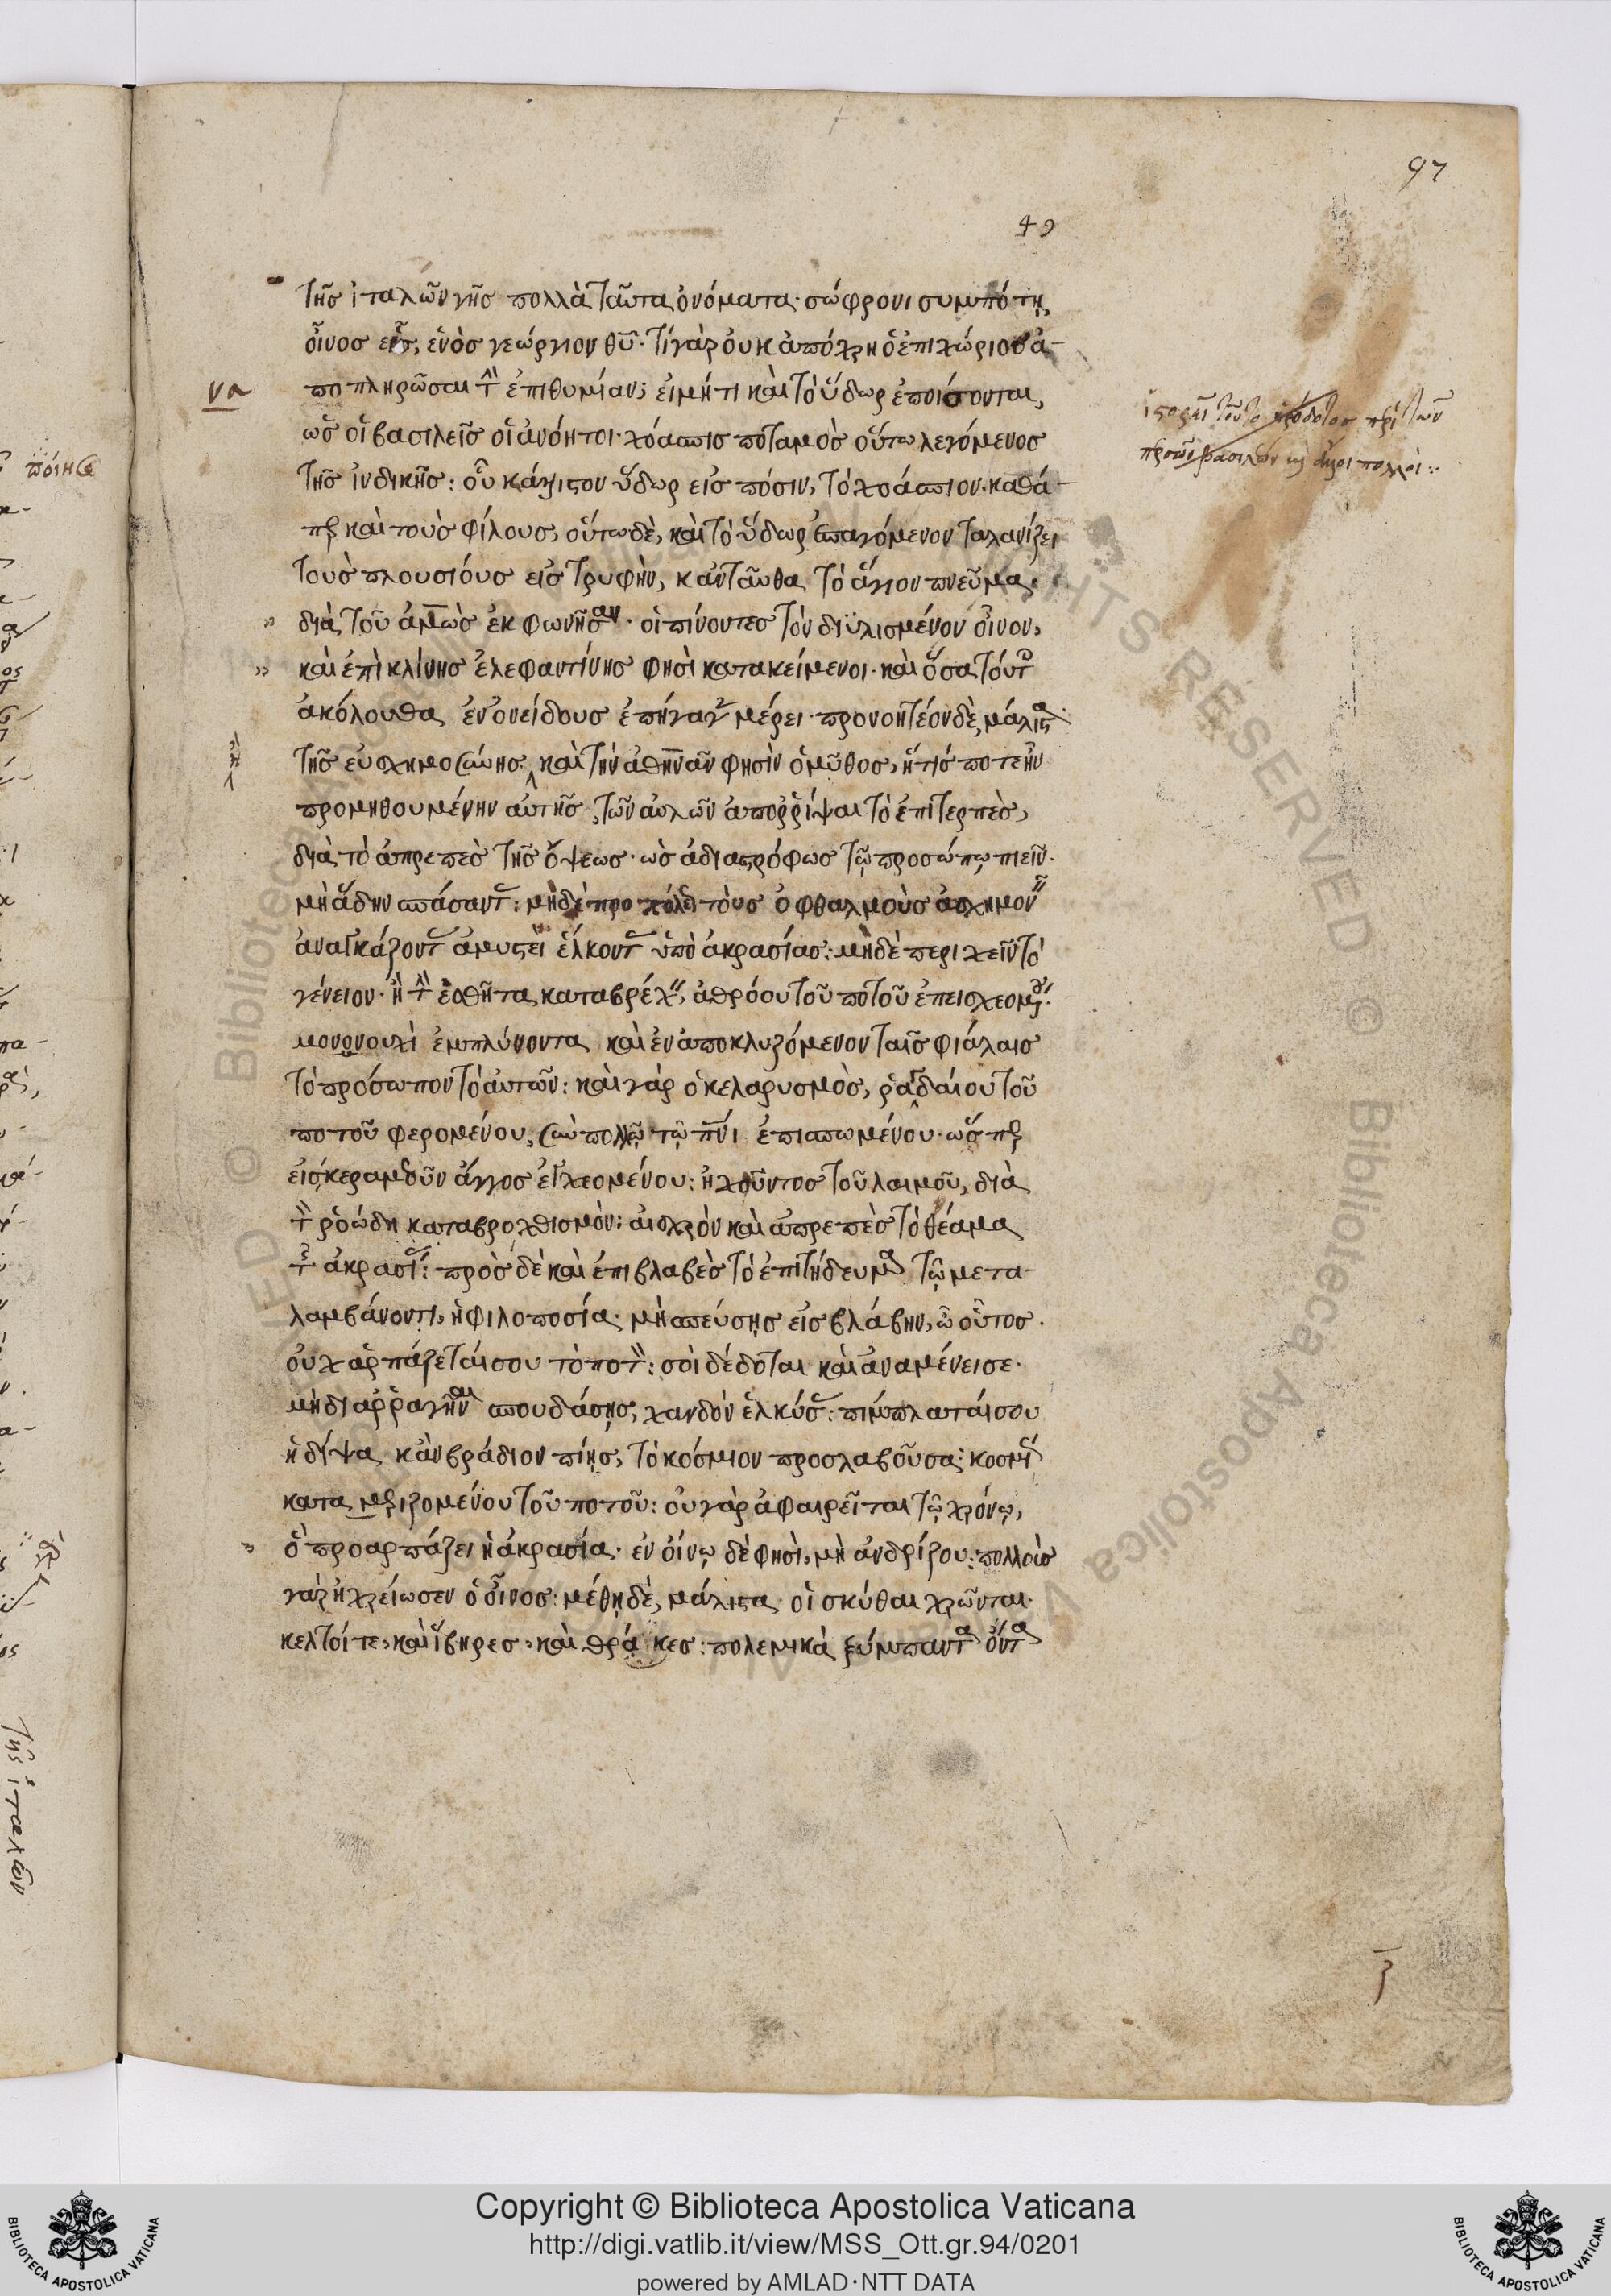 97
49
τῆσ ἰταλῶν γῆσ πολλὰ ταῦτα ὀνόματα· σώφρονι συμπότῃ,
οἶνοσ εἷσ, ἑνὸσ γεώργιον θῦ· τί γὰρ οὐκ ἀπόχρη ὁ ἐπιχώριοσ ἀ-
να
ποπληρῶσαι τὴν ἐπιθυμίαν; εἰ μήτι καὶ τὸ ὕδωρ ἐποίσονται,
ὡσ οἱ βασιλεῖσ οἱ ἀνόητοι· χόασπισ ποταμὸσ οὕτω λεγόμενοσ
ἱστορεῖ τοῦτο ἡρόδοτοσ περὶ τῶν
περσῶν βασιλέων καὶ ἄλλοι πολλοί:·
τῆσ ἰνδικῆσ: οὗ κάλλιστον ὕδωρ εἰσ πόσιν, τὸ χοάσπιον· καθά-
περ καὶ τοὺσ φίλουσ, οὕτω δὲ, καὶ τὸ ὕδωρ ἐπαγόμενον ταλανίζει
τοὺσ πλουσίουσ εἰσ τρυφὴν, κἀνταῦθα τὸ ἅγιον πνεῦμα·
διὰ τοῦ ἀμὼσ ἐκφωνῆσαν· οἱ πίνοντεσ τὸν διϋλισμένον οἶνον,
καὶ ἐπὶ κλίνησ ἐλεφαντίνησ φησὶ κατακείμενοι· καὶ ὅσα τούτοισ
ἀκόλουθα ἐν ὀνείδουσ ἐπήγαγεν μέρει· προνοητέον δὲ, μάλιστα
τῆσ εὐσχημοσύνησ: καὶ τὴν ἀθηνᾶν φησὶν ὁ μῦθοσ, ἥτισ ποτὲ ἦν
προμηθουμένην αὐτῆσ, τῶν αὐλῶν ἀπορρίψαι τὸ ἐπιτερπὲσ,
διὰ τὸ ἀπρεπὲσ τῆσ ὄψεωσ· ὡσ ἀδιαστρόφωσ τῷ προσώπῳ πιεῖν·
μὴ ἄδην σπάσαντασ: μηδὲ πρὸ τοῦ τοὺσ ὀφθαλμοὺσ ἀσχημονεῖν
ἀναγκάζοντασ ἀμυστεὶ ἕλκοντασ ὑπὸ ἀκρασίασ: μηδὲ περιχεῖν τὸ
γένειον· ἢ τὴν ἐσθῆτα καταβρέχειν, ἀθρόου τοῦ ποτοῦ ἐπεισχεομένου·
μονονουχὶ ἐμπλύνοντα καὶ ἐναποκλυζόμενον ταῖσ φιάλαισ
τὸ πρόσωπον τὸ αὐτῶν: καὶ γὰρ ὁ κελαρυσμὸσ, ῥαγδαίου τοῦ
ποτοῦ φερομένου, σὺν πολλῷ τῷ πνι ἐπισπωμένου· ὥσπερ
εἰσ κεραμεοῦν ἄγγοσ ἐγχεομένου: ἠχοῦντοσ τοῦ λαιμοῦ, διὰ
τὴν ῥοώδη καταβροχθισμὸν: αἰσχρὸν καὶ ἀπρεπὲσ τὸ θέαμα
τῆσ ἀκρασίασ: πρὸσ δὲ καὶ ἐπιβλαβὲσ τὸ ἐπιτήδευμα τῷ μετα-
λαμβάνοντι, ἡ φιλοποσία· μὴ σπεύσῃσ εἰσ βλάβην, ὦ οὗτοσ·
οὐχ ἁρπάζεταί σου τὸ ποτὸν: σοὶ δέδοται καὶ ἀναμένει σε·
μὴ διαρραγῆναι σπουδάσῃσ, χανδὸν ἑλκύσασ: πίμπλαταί σου
ἡ δίψα, κἂν βράδιον πίῃσ, τὸ κόσμιον προσλαβοῦσα: κοσμίωσ
καταμεριζομένου τοῦ ποτοῦ: οὐ γὰρ ἀφαιρεῖται τῷ χρόνῳ,
ὃ προαρπάζει ἡ ἀκρασία· ἐν οἴνῳ δὲ φησὶ, μὴ ἀνδρίζου: πολλοὺσ
γὰρ ἠχρείωσεν ὁ οἶνοσ: μέθῃ δὲ, μάλιστα οἱ σκύθαι χρῶνται·
κελτοί τε, καὶ ἴβηρεσ, καὶ θρᾷκεσ: πολεμικὰ ξύμπαντα ὄντα
τῆσ ἰταλῶν
Copyright © Biblioteca Apostolica Vaticana
http://digi.vatlib.it/view/MSS_Ott.gr.94/0201
powered by AMLAD·NTT DATA
BIBLIOTECA APOSTOLICA VATICANA
BIBLIOTECA APOSTOLICA VATICANA